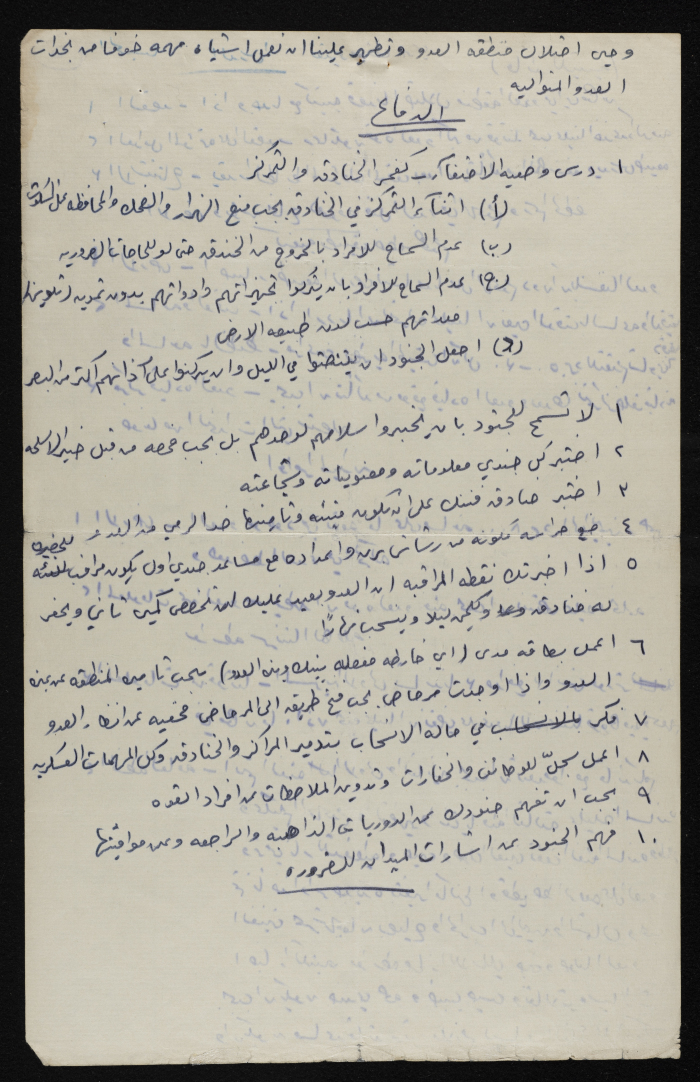 وحين احتلال منطقه العدو وتطهير علينا ان نعمل اشياء مهمه خوفا من نجدات
العدو المتواليه
الدفاع
١ درس وضعيه الاختفاء كحفر الخنادق والتمركز
(أ) اثناء التمركز في الخنادق يجب منع النهرار والضحك والمحافظه على السكوت
(ب) عدم السماح للافراد بالخروج من الخندق حتى لو للحاجات الضروريه
(ج) عدم السماح للافراد بان يتركوا تجهيزاتهم وادواتهم بدون تمويه (تلوين)
معداتهم حسب لون طبيعه الارض
(د) اجعل الجنود ان يتنصتوا في الليل وان يركنوا على آذانهم اكثر من البصر
١ لا تسمح للجنود بان يختبروا سلاحهم لوحدهم بل يجب فحصه من قبل خبير الاسلحه
٢ اختبر كل جندي معلوماته ومعنوياته وشجاعته
٣ اختبر خنادق فئتك على ان تكون متينه ضد الرمي من العدو
٤ ضع حراسه مكونه من رشاش برن وامداده مع مساعد جندي اول يكون مراقب للفئه
٥ اذا اخبرتك نقطه المراقبه ان العدو بعيد عليك ان تخصص كمين ثاني ويحفر
له خنادق ويكمن ليلا وينسحب نهارًا
٦ اعمل بطاقه مدى (اي خارطه مفصله بينك وبين العدو) يجب تامين المنطقه عن عين
العدو واذا اوجدت مرحاض يجب فتح طريق الى المرحاض مخفيه عن انظار العدو
٧ فكر بالانسحاب في حاله الانسحاب بتدمير المراكز والخنادق وكل المهمات العسكريه
٨ اعمل سجلّ للوظائف والخفارات وتدوين الملاحظات عن افراد القوه
٩ يجب ان تفهم جنودك عن الدوريات الذاهبه والراجعه وعن مواقيتها
١٠ فهم الجنود عن اشارات الميدان للضروره